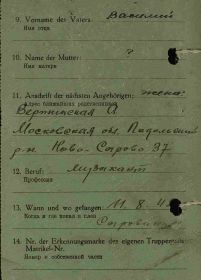 9. Vorname des Vaters: Василий
Имя отца
10. Name der Mutter: ?
Имя матери
11. Anschrift der nächsten Angehörigen: жена:
Адрес ближайших родственников
Вертинская А.
Московская об. Подольский
р-н Ново-Сырово 37
12. Beruf: Музыкант
Профессия
13. Wann und wo gefangen: 11. 8. 4
Когда и где попал в плен
14. Nr. der Erkennungsmarke des eigenen Truppenteils
Matrikel-Nr.
Номер в собственной части